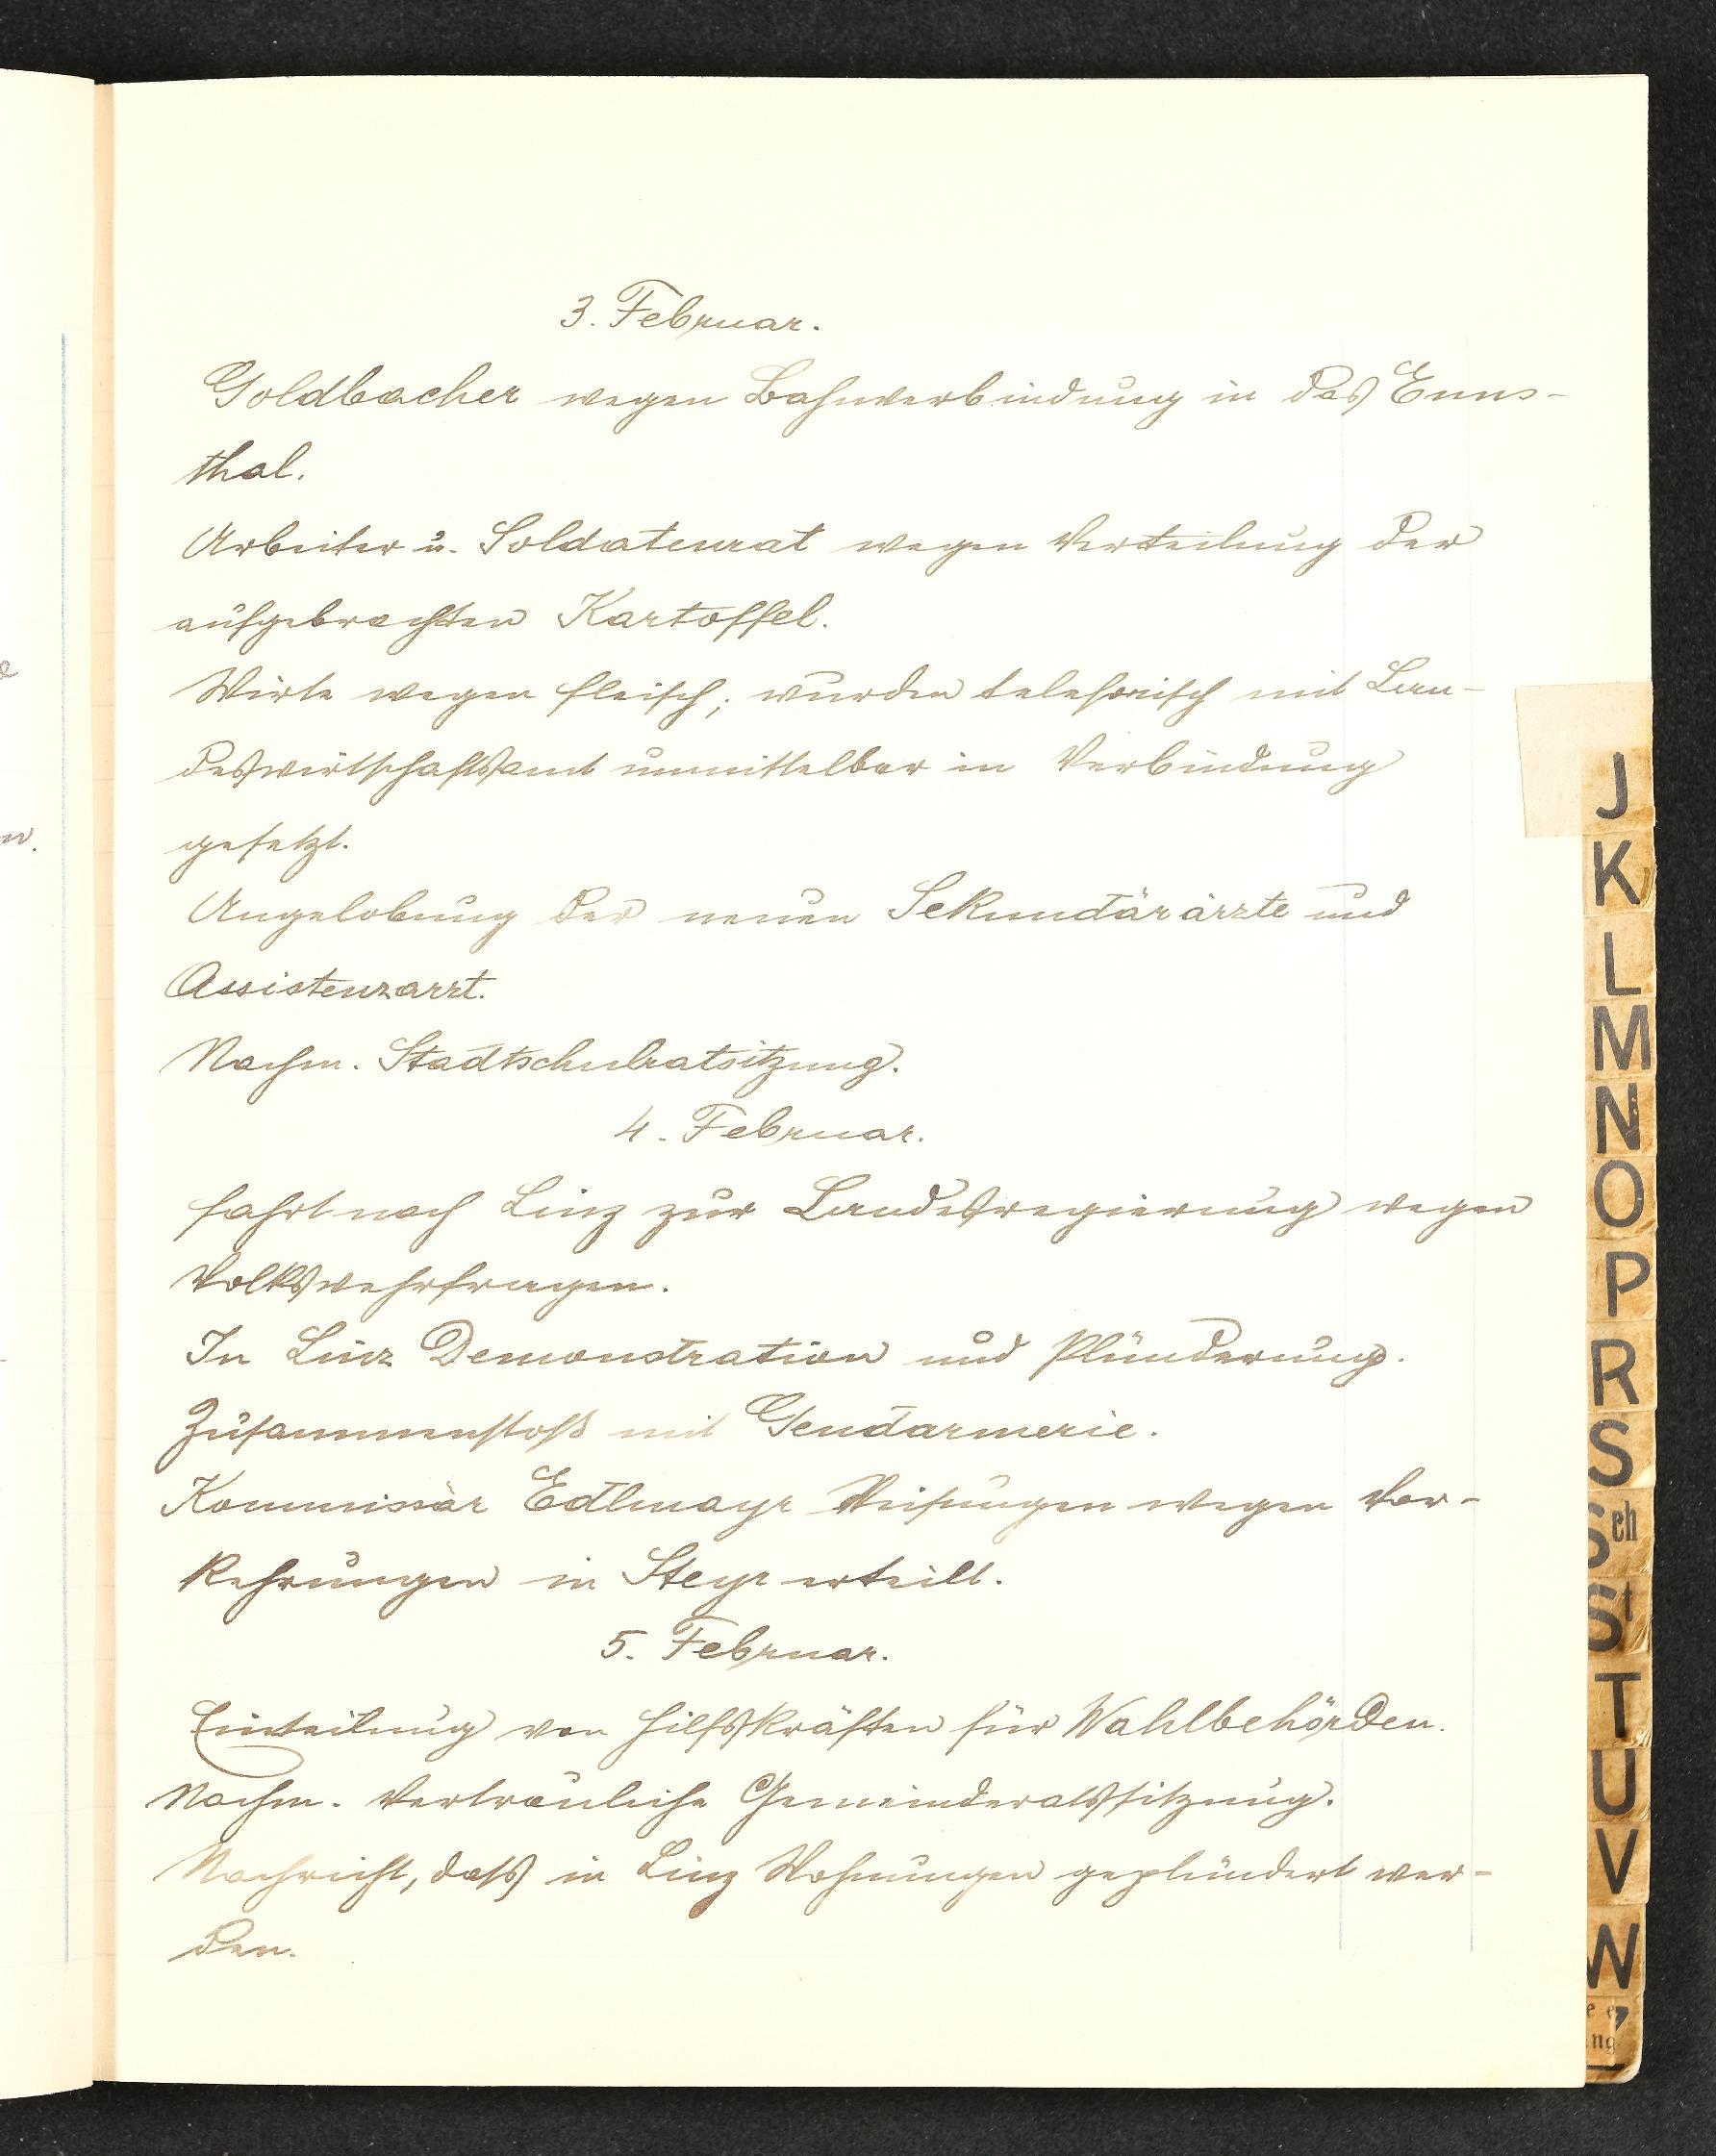 3. Februar.
Goldbacher wegen Bahnverbindung in das Enns-
thal.
Arbeiter u. Soldatenrat wegen Verteilung der
aufgebrachten Kartoffel.
Wirte wegen Fleisch; wurden telefonisch mit Lan-
deswirtschaftsamt unmittelbar in Verbindung
gesetzt.
Angelobung der neuen Sekundärärzte und
Assistenzarzt.
Nachm. Stadtschulratsitzung.
4. Februar.
Fahrt nach Linz zur Landesregierung wegen
Volkswehrfragen.
In Linz Demonstration und Plünderung.
Zusammenstoß mit Gendarmerie.
Kommissär Edlmayr Weisungen wegen Vor-
kehrungen in Steyr erteilt.
5. Februar.
Einteilung von Hilfskräften für Wahlbehörden.
Nachm. Vertrauliche Gemeinderatssitzung.
Nachricht, dass in Linz Wohnungen geplündert wer-
den.
J
K
L
M
N
O
P
R
S
Sch
St
T
U
V
W